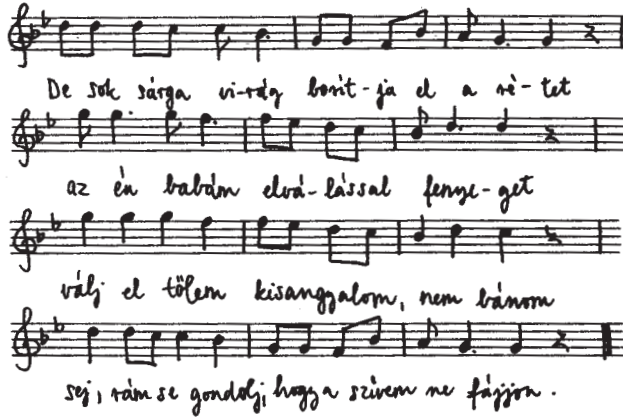 De sok sárga vi-rág borít-ja el a ré-tet
az én babám elvá-lással fenye-get
válj el tőlem kisangyalom, nem bánom
sej, rám se gondolj, hogy a szívem ne fájjon.